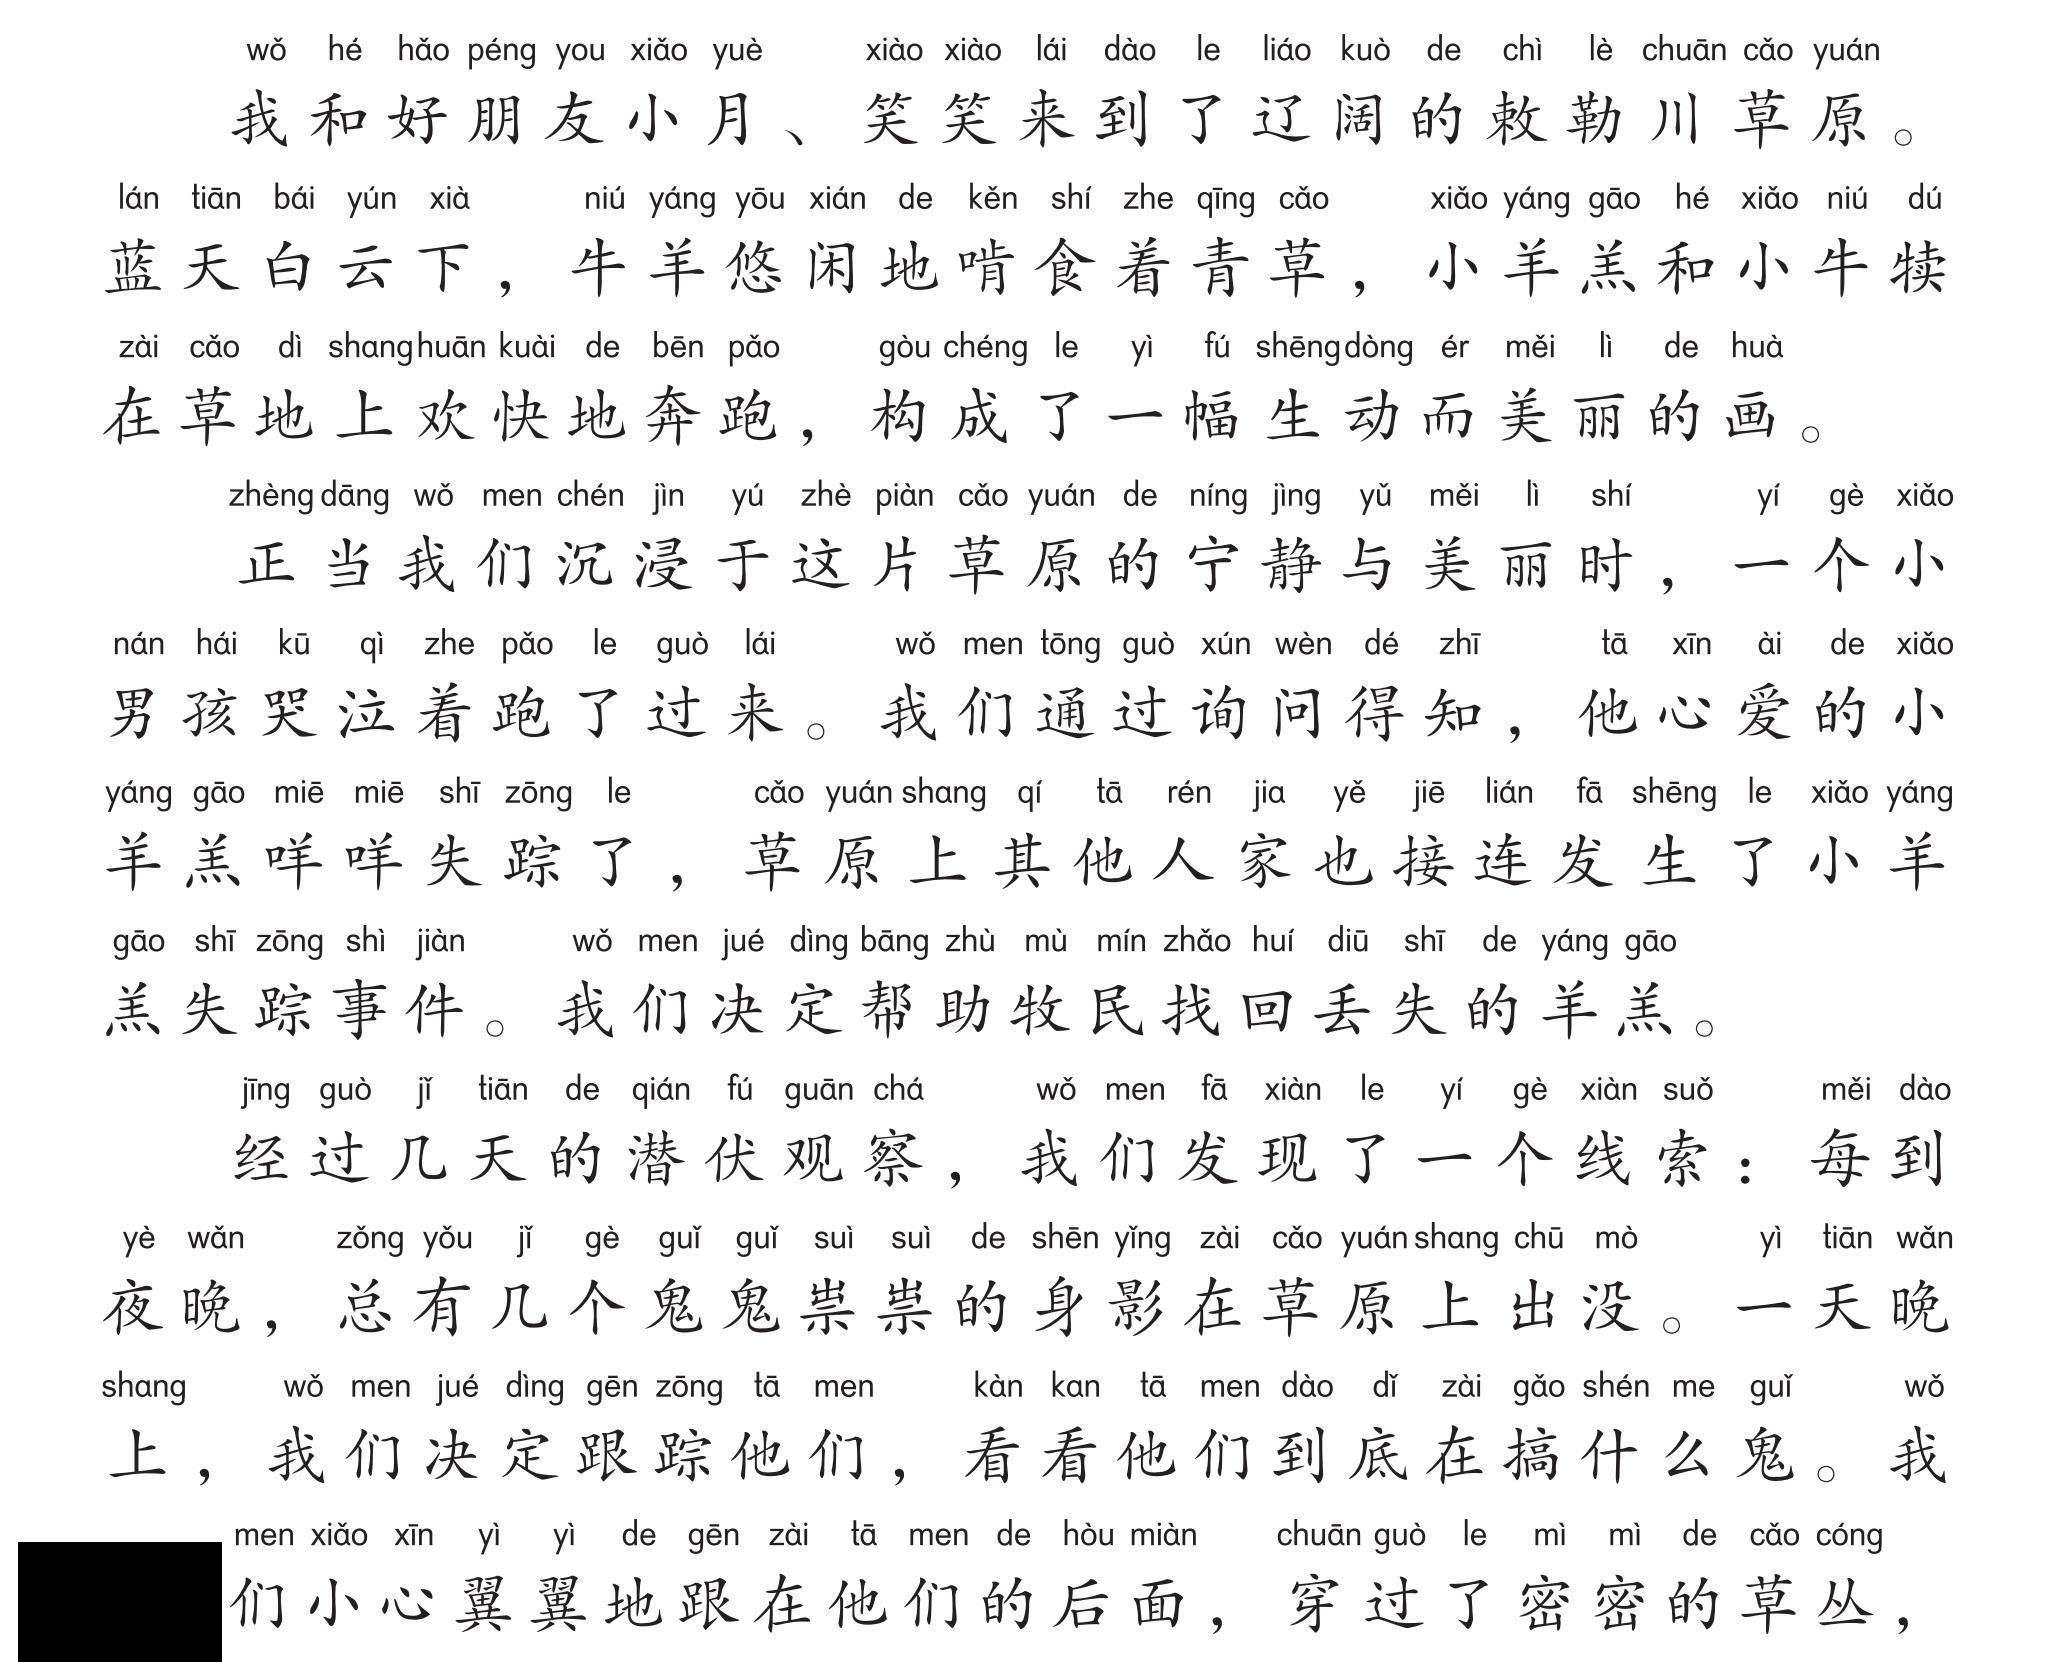 wǒ hé hǎo péng you xiǎo yuè xiào xiào lái dào le liáo kuò de chì lè chuān cǎo yuán
我和好朋友小月、笑笑来到了辽阔的敕勒川草原。
lán tiān bái yún xià niú yáng yōu xián de kěn shí zhe qīng cǎo xiǎo yáng gāo hé xiǎo niú dú
蓝天白云下，牛羊悠闲地啃食着青草，小羊羔和小牛犊
zài cǎo dì shang huān kuài de bēn pǎo gòu chéng le yì fú shēng dòng ér měi lì de huà
在草地上欢快地奔跑，构成了一幅生动而美丽的画。
zhèng dāng wǒ men chén jìn yú zhè piàn cǎo yuán de níng jìng yǔ měi lì shí yí gè xiǎo
正当我们沉浸于这片草原的宁静与美丽时，一个小
nán hái kū qì zhe pǎo le guò lái wǒ men tōng guò xún wèn dé zhī tā xīn ài de xiǎo
男孩哭泣着跑了过来。我们通过询问得知，他心爱的小
yáng gāo miē miē shī zōng le cǎo yuán shang qí tā rén jia yě jiē lián fā shēng le xiǎo yáng
羊羔咩咩失踪了，草原上其他人家也接连发生了小羊
gāo shī zōng shì jiàn wǒ men jué dìng bāng zhù mù mín zhǎo huí diū shī de yáng gāo
羔失踪事件。我们决定帮助牧民找回丢失的羊羔。
jīng guò jǐ tiān de qián fú guān chá wǒ men fā xiàn le yí gè xiàn suǒ měi dào
经过几天的潜伏观察，我们发现了一个线索：每到
yè wǎn zǒng yǒu jǐ gè guǐ guǐ suì suì de shēn yǐng zài cǎo yuán shang chū mò yì tiān wǎn
夜晚，总有几个鬼鬼祟祟的身影在草原上出没。一天晚
shang wǒ men jué dìng gēn zōng tā men kàn kan tā men dào dǐ zài gǎo shén me guǐ wǒ
上，我们决定跟踪他们，看看他们到底在搞什么鬼。我
men xiǎo xīn yì yì de gēn zài tā men de hòu miàn chuān guò le mì mì de cǎo cóng
们小心翼翼地跟在他们的后面，穿过了密密的草丛，